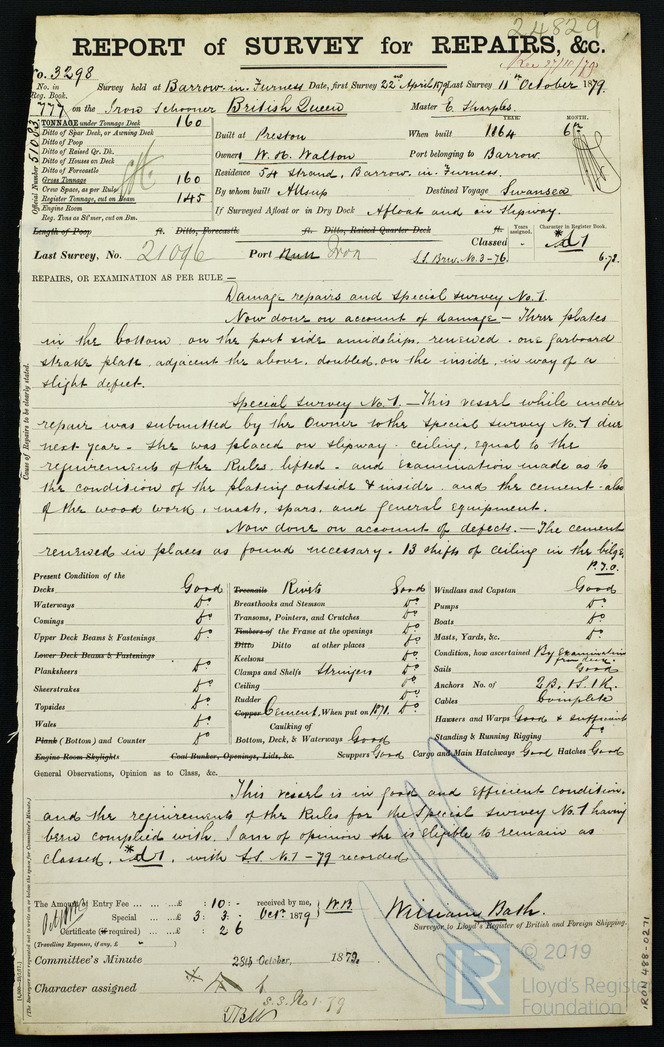 24829
REPORT of SURVEY for REPAIRS, &c.
Rec 27/10/79
No. 3298
Survey held at Barrow-in-Furness Date, first Survey 22nd April 1879 Last Survey 11th October 1879.
No. in Reg. Book.
777 on the Iron Schooner British Queen Master E. Sharples.
Official Number 51083
TONNAGE under Tonnage Deck 160
Ditto of Spar Deck, or Awning Deck
Ditto of Poop
Ditto of Raised Qr. Dk.
Ditto of Houses on Deck
Ditto of Forecastle
Gross Tonnage 160
Crew Space, as per Rule
Register Tonnage, cut on Beam 145
Engine Room
Reg. Tons as St'mer, cut on Bm.
YEAR. MONTH.
Built at Preston When built 1864 6th
Owners W. H. Walton Port belonging to Barrow.
Residence 54 Strand, Barrow-in-Furness.
By whom built Allsup Destined Voyage Swansea
If Surveyed Afloat or in Dry Dock Afloat and on Slipway.
Length of Poop ft. Ditto, Forecastle ft. Ditto, Raised Quarter Deck ft.
Years assigned. Character in Register Book.
Classed - *A1
Last Survey, No. 21096 Port Hull Iron S.S. Brw. No. 3-76. 6.78.
REPAIRS, OR EXAMINATION AS PER RULE —
Damage repairs and Special Survey No. 1.
Now done on account of damage — Three plates
in the bottom on the port side amidships, renewed - one garboard
strake plate, adjacent the above, doubled on the inside, in way of a
slight defect.
Special Survey No. 1. — This vessel while under
repair was submitted by the Owner to the Special Survey No. 1 due
next year - She was placed on slipway - ceiling, equal to the
requirements of the Rules, lifted - and examination made as to
the condition of the plating outside & inside, and the cement - also
of the wood work, masts, spars, and general equipment.
Now done on account of defects. — The cement
renewed in places as found necessary - 13 shifts of ceiling in the bilge
P.T.O.
Cause of Repairs to be clearly stated.
Present Condition of the
Decks Good
Waterways Do
Comings Do
Upper Deck Beams & Fastenings Do
Lower Deck Beams & Fastenings
Planksheers Do
Sheerstrakes Do
Topsides Do
Wales Do
Plank (Bottom) and Counter Do
Engine Room Skylights Coal Bunker, Openings, Lids, &c.
Treenails Rivets Good
Breasthooks and Stemson Do
Transoms, Pointers, and Crutches Do
Timbers of the Frame at the openings Do
Ditto Ditto at other places Do
Keelsons Do
Clamps and Shelfs Stringers Do
Ceiling Do
Rudder Do
Copper Cement, When put on 1871. Do
Caulking of
Bottom, Deck, & Waterways Good
Scuppers Good Cargo and Main Hatchways Good Hatches Good
Windlass and Capstan Good
Pumps Do
Boats Do
Masts, Yards, &c. Do
Condition, how ascertained By Examination from deck.
Sails Good
Anchors No. of 2 B. 1 S. 1 K.
Cables Complete
Hawsers and Warps Good & sufficient
Standing & Running Rigging Do
General Observations, Opinion as to Class, &c.
This vessel is in good and efficient condition,
and the requirements of the Rules for the Special Survey No. 1 having
been complied with, I am of opinion she is Eligible to remain as
classed, *A1, with S.S. No. 1 - 79 recorded
The Amount of Entry Fee ... ... ...£ : 10 : - received by me,
Special ... ...£ 3 : 3 : - Octr. 1879 W.B
Certificate (if required) ... : 2 6
(Travelling Expenses, if any, £ )
William Bath.
Surveyor to Lloyd's Register of British and Foreign Shipping.
Committee's Minute 28th October, 1879.
Character assigned * A 1
S.S. No 1-79
IRON 488-0271
© 2019
LR
Lloyd's Register
Foundation